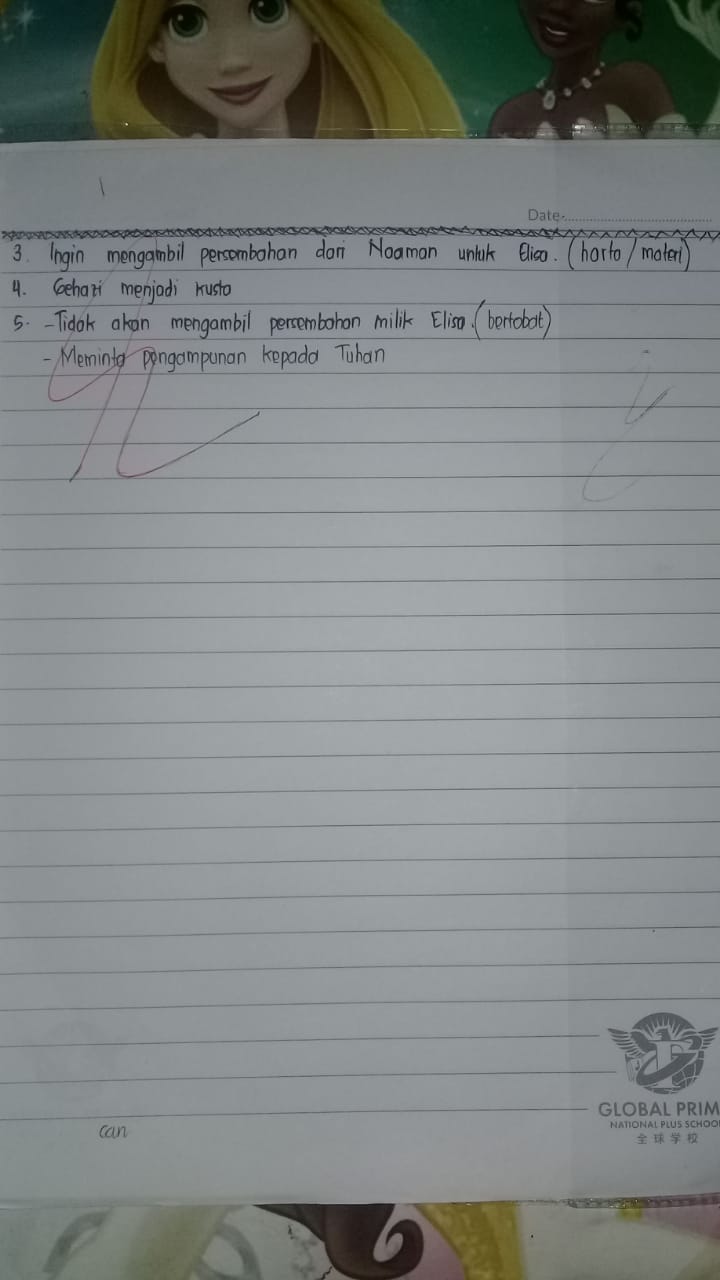 Date:
3. Ingin mengambil persembahan dari Naaman untuk Elisa. (harta / materi)
4. Gehazi menjadi kusta
5. - Tidak akan mengambil persembahan milik Elisa. (bertobat)
- Meminta pengampunan kepada Tuhan
GLOBAL PRIM
NATIONAL PLUS SCHOO
全球学校
can